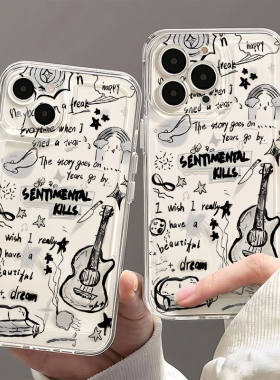 n
happy
freak
everyone when I
The story goes on
Years go by.
SENTIMENTAL
KILLS.
I wish I really
have a
beautiful
dream
n
happy
freak
everyone when I
The story goes on
Years go by.
SENTIMENTAL
KILLS.
I wish I really
have a
beautiful
dream